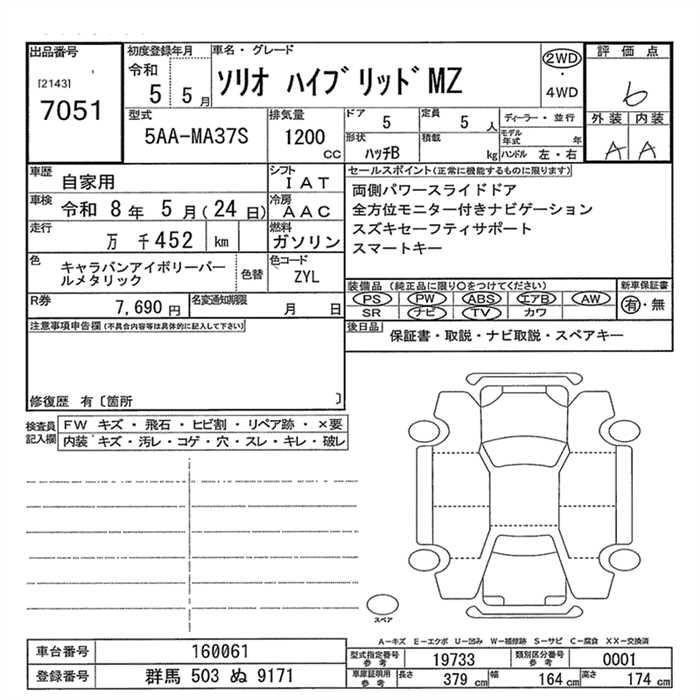 出品番号
[2143]
7051
初度登録年月
令和
5 5 月
車名・グレード
ソリオ ハイブリッドMZ
2WD
・
4WD
評価点
6
外装 内装
A A
型式
5AA-MA37S
排気量
1200
CC
ドア
5
定員
5 人
形状
ハッチB
積載
kg
ディーラー・並行
モデル年式 年
ハンドル 左・右
車歴
自家用
シフト
IAT
車検
令和 8年 5月(24日)
冷房
AAC
走行
万 千452 km
燃料
ガソリン
色
キャラバンアイボリーパー
ルメタリック
色替
色コード
ZYL
R券
7,690 円
名変通知期限
月 日
セールスポイント(正常に機能するものに限ります)
両側パワースライドドア
全方位モニター付きナビゲーション
スズキセーフティサポート
スマートキー
装備品 (純正品に限り○をつけてください)
PS PW ABS エアB AW
SR ナビ TV カワ
新車保証書
有・無
後日品
保証書・取説・ナビ取説・スペアキー
注意事項申告欄(不具合内容等は具体的に記入して下さい)
修復歴 有〔箇所 〕
検査員
記入欄
FW キズ・飛石・ヒビ割・リペア跡・×要
内装 キズ・汚レ・コゲ・穴・スレ・キレ・破レ
スペア
A-キズ E-エクボ U-凹み W-補修跡 S-サビ C-腐食 XX-交換済
車台番号
160061
登録番号
群馬 503 ぬ 9171
型式指定番号
参考
19733
類別区分番号
参考
0001
車庫証明用
参考
長さ 379 cm
幅 164 cm
高さ 174 cm